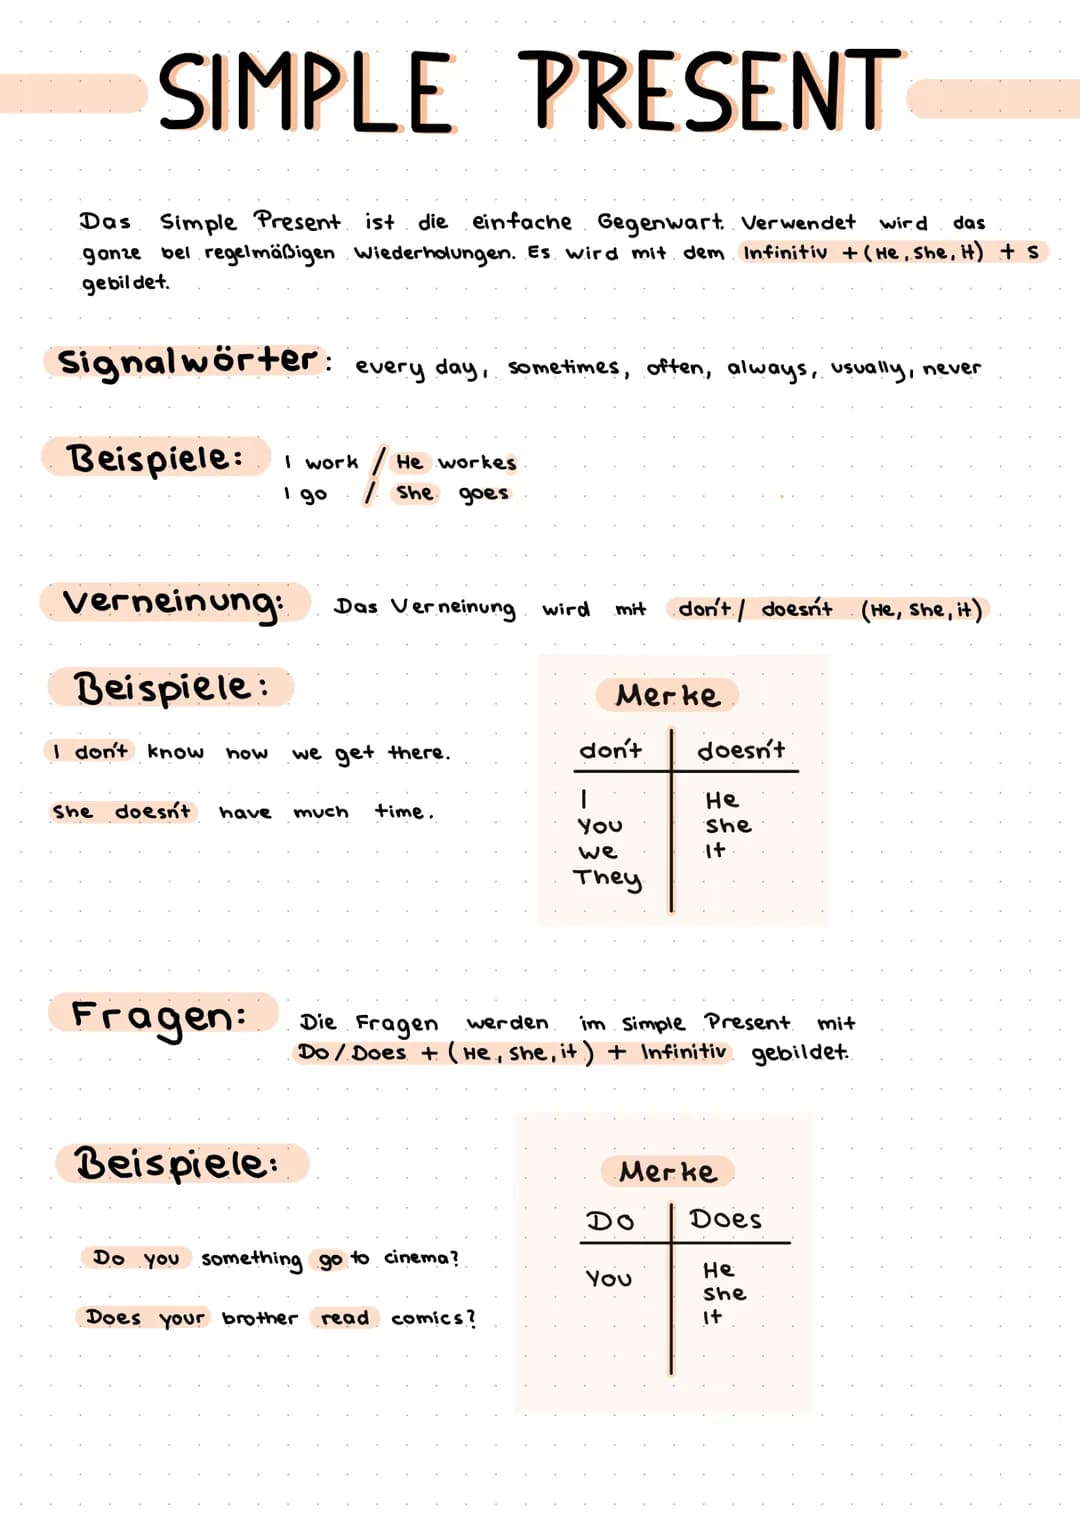 SIMPLE PRESENT
Das Simple Present ist die einfache Gegenwart. Verwendet wird das
ganze bei regelmäßigen Wiederholungen. Es wird mit dem Infinitiv + (He, She, it) + s
gebildet.
Signalwörter: every day, sometimes, often, always, usually, never
Beispiele: I work / He workes
I go / She goes
Verneinung: Das Verneinung wird mit don't / doesn't (He, She, it)
Beispiele:
I don't know how we get there.
She doesn't have much time.
Merke
don't doesn't
I He
You She
We It
They
Fragen: Die Fragen werden im Simple Present mit
Do / Does + (He, She, it) + Infinitiv gebildet.
Beispiele:
Do you something go to cinema?
Does your brother read comics?
Merke
Do Does
You He
She
It